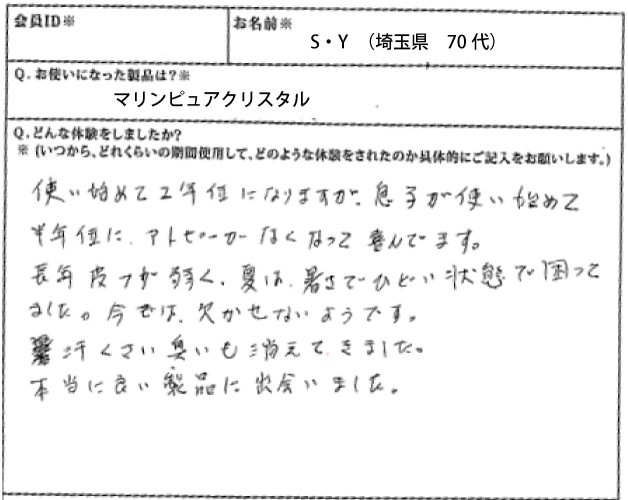 会員ID※
お名前※
S・Y （埼玉県 70代）
Q. お使いになった製品は？※
マリンピュアクリスタル
Q. どんな体験をしましたか？
※（いつから、どれくらいの期間使用して、どのような体験をされたのか具体的にご記入をお願いします。）
使い始めて2年位になりますが、息子が使い始めて
半年位に、アトピーがなくなって喜んでます。
長年皮フが弱く、夏は、暑さでひどい状態で困って
ました。今では、欠かせないようです。
汗くさい臭いも消えてきました。
本当に良い製品に出会いました。